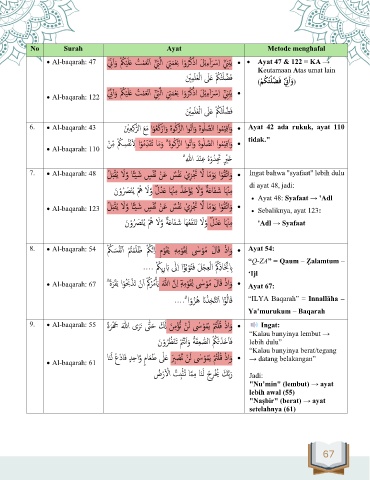 No Surah Ayat Metode menghafal
• Al-baqarah: 47
• يَٰبَنِىٓ إِسْرَٰٓءِيلَ ٱذْكُرُوا۟ نِعْمَتِىَ ٱلَّتِىٓ أَنْعَمْتُ عَلَيْكُمْ وَأَنِّى
فَضَّلْتُكُمْ عَلَى ٱلْعَٰلَمِينَ
• Al-baqarah: 122
• يَٰبَنِىٓ إِسْرَٰٓءِيلَ ٱذْكُرُوا۟ نِعْمَتِىَ ٱلَّتِىٓ أَنْعَمْتُ عَلَيْكُمْ وَأَنِّى
فَضَّلْتُكُمْ عَلَى ٱلْعَٰلَمِينَ
• Ayat 47 & 122 = KA →
Keutamaan Atas umat lain
(وَأَنِّى فَضَّلْتُكُمْ)
6. • Al-baqarah: 43
• وَأَقِيمُوا۟ ٱلصَّلَوٰةَ وَءَاتُوا۟ ٱلزَّكَوٰةَ وَٱرْكَعُوا۟ مَعَ ٱلرَّٰكِعِينَ
• Al-baqarah: 110
• وَأَقِيمُوا۟ ٱلصَّلَوٰةَ وَءَاتُوا۟ ٱلزَّكَوٰةَ ۚ وَمَا تُقَدِّمُوا۟ لِأَنفُسِكُم مِّنْ
خَيْرٍ تَجِدُوهُ عِندَ ٱللَّهِ ۗ
• Ayat 42 ada rukuk, ayat 110
tidak."
7. • Al-baqarah: 48
• وَٱتَّقُوا۟ يَوْمًا لَّا تَجْزِى نَفْسٌ عَن نَّفْسٍ شَيْـًٔا وَلَا يُقْبَلُ
مِنْهَا شَفَٰعَةٌ وَلَا يُؤْخَذُ مِنْهَا عَدْلٌ وَلَا هُمْ يُنصَرُونَ
• Al-baqarah: 123
• وَٱتَّقُوا۟ يَوْمًا لَّا تَجْزِى نَفْسٌ عَن نَّفْسٍ شَيْـًٔا وَلَا يُقْبَلُ
مِنْهَا عَدْلٌ وَلَا تَنفَعُهَا شَفَٰعَةٌ وَلَا هُمْ يُنصَرُونَ
Ingat bahwa "syafaat" lebih dulu
di ayat 48, jadi:
• Ayat 48: Syafaat → 'Adl
• Sebaliknya, ayat 123:
'Adl → Syafaat
8. • Al-baqarah: 54
• وَإِذْ قَالَ مُوسَىٰ لِقَوْمِهِۦ يَٰقَوْمِ إِنَّكُمْ ظَلَمْتُمْ أَنفُسَكُم
بِٱتِّخَاذِكُمُ ٱلْعِجْلَ فَتُوبُوٓا۟ إِلَىٰ بَارِئِكُمْ ....
• Al-baqarah: 67
• وَإِذْ قَالَ مُوسَىٰ لِقَوْمِهِۦٓ إِنَّ ٱللَّهَ يَأْمُرُكُمْ أَن تَذْبَحُوا۟ بَقَرَةً ۖ
قَالُوٓا۟ أَتَتَّخِذُنَا هُزُوًا ۖ ....
• Ayat 54:
"Q-Z4" = Qaum – Zalamtum –
'Ijl
• Ayat 67:
"ILYA Baqarah" = Innallāha –
Ya'murukum – Baqarah
9. • Al-baqarah: 55
• وَإِذْ قُلْتُمْ يَٰمُوسَىٰ لَن نُّؤْمِنَ لَكَ حَتَّىٰ نَرَى ٱللَّهَ جَهْرَةً
فَأَخَذَتْكُمُ ٱلصَّٰعِقَةُ وَأَنتُمْ تَنظُرُونَ
• Al-baqarah: 61
• وَإِذْ قُلْتُمْ يَٰمُوسَىٰ لَن نَّصْبِرَ عَلَىٰ طَعَامٍ وَٰحِدٍ فَٱدْعُ لَنَا
رَبَّكَ يُخْرِجْ لَنَا مِمَّا تُنۢبِتُ ٱلْأَرْضُ
• Ingat:
"Kalau bunyinya lembut →
lebih dulu"
"Kalau bunyinya berat/tegang
→ datang belakangan"
Jadi:
"Nu'min" (lembut) → ayat
lebih awal (55)
"Naṣbir" (berat) → ayat
setelahnya (61)
67